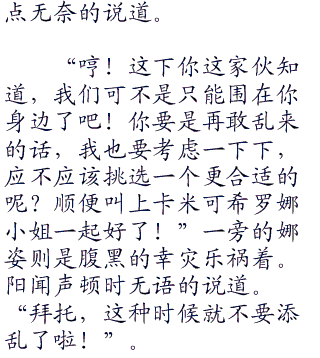 点无奈的说道。
“哼！这下你这家伙知
道，我们可不是只能围在你
身边了吧！你要是再敢乱来
的话，我也要考虑一下下，
应不应该挑选一个更合适的
呢？顺便叫上卡米可希罗娜
小姐一起好了！”一旁的娜
姿则是腹黑的幸灾乐祸着。
阳闻声顿时无语的说道。
“拜托，这种时候就不要添
乱了啦！”。